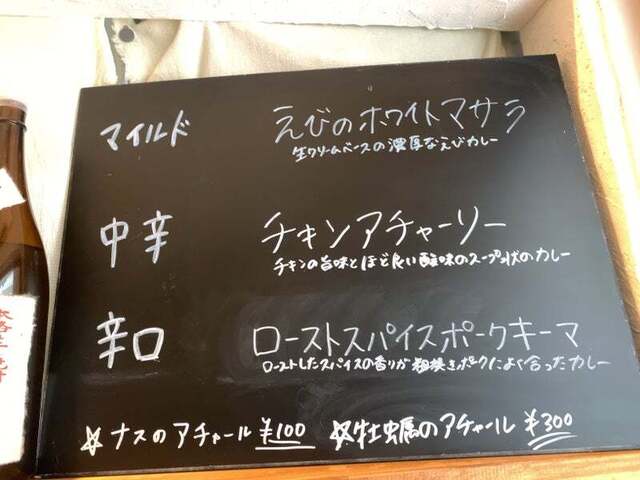 マイルド えびのホワイトマサラ
生クリームベースの濃厚なえびカレー
中辛 チキンアチャーリー
チキンの旨味とほど良い酸味のスープ状のカレー
辛口 ローストスパイスポークキーマ
ローストしたスパイスの香りが粗挽きポークによく合ったカレー
☆ナスのアチャール ¥100 ☆牡蠣のアチャール ¥300